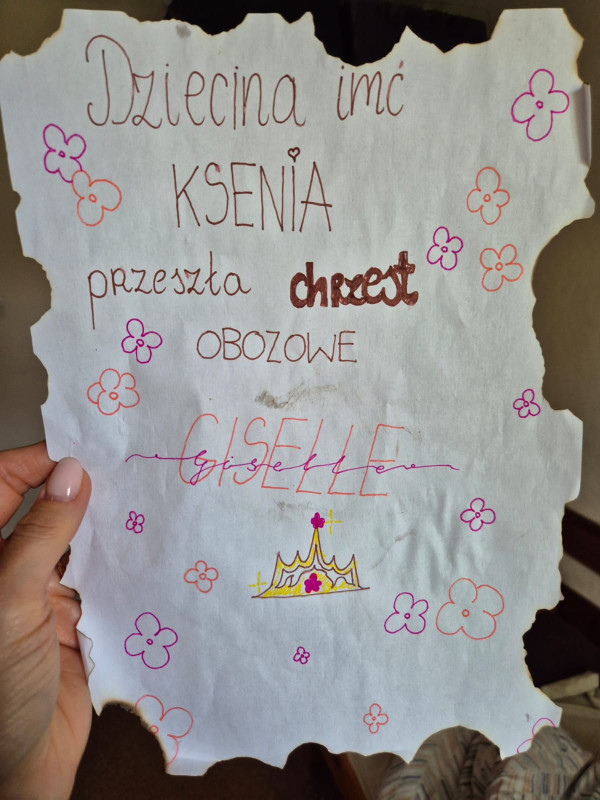 Dziecina imć
KSENIA
przeszła chrzest
OBOZOWE
GISELLE
Giselle